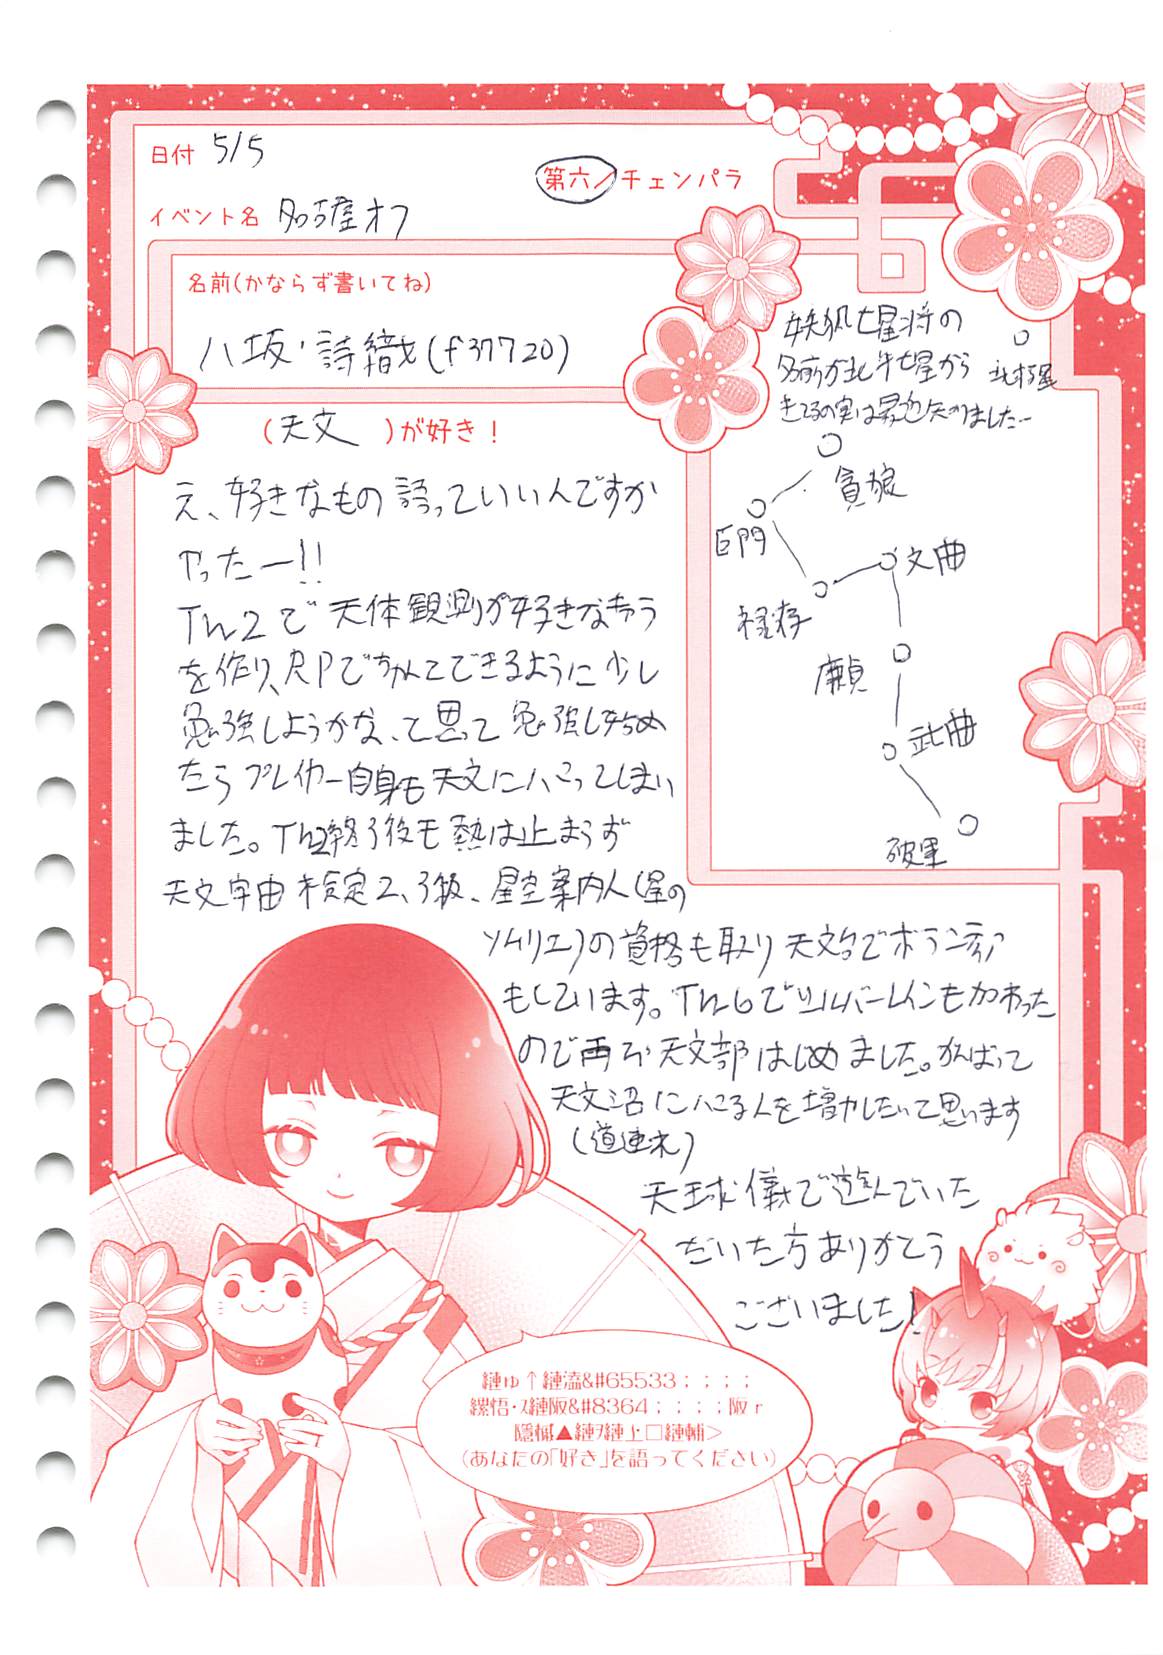 日付 5/5
第六/チェンパラ
イベント名 名古屋オフ
名前(かならず書いてね)
八坂・詩織(f37720)
(天文)が好き!
妖狐七星将の
名前が北斗七星から
きてるの実は最近知りました…
北極星
貪狼
巨門
禄存
文曲
廉貞
武曲
破軍
え、好きなもの語っていいんですか
やったー!!
TW2で天体観測が好きなキャラ
を作り、RPで
できるように少し
勉強しようかな、って思って勉強しはじめ
たらプレイヤー自身も天文にハマってしまい
ました。TW2終了後も熱は止まらず
天文宇宙検定2、3級、星空案内人(星の
ソムリエ)の資格も取り天文台でボランティア
もしています。TW6でシルバーレインも加わった
ので再び天文部はじめました。がんばって
天文沼にハマる人を増やしたいって思います
(道連れ)
天球儀で遊んでいた
だいた方ありがとう
ございました!
縺ゅ↑縺溘&#65533;;;;
縲悟・ｽ縺阪&#8364;;;;;阪r
隱槭▲縺ｦ縺上□縺輔>
(あなたの「好き」を語ってください)